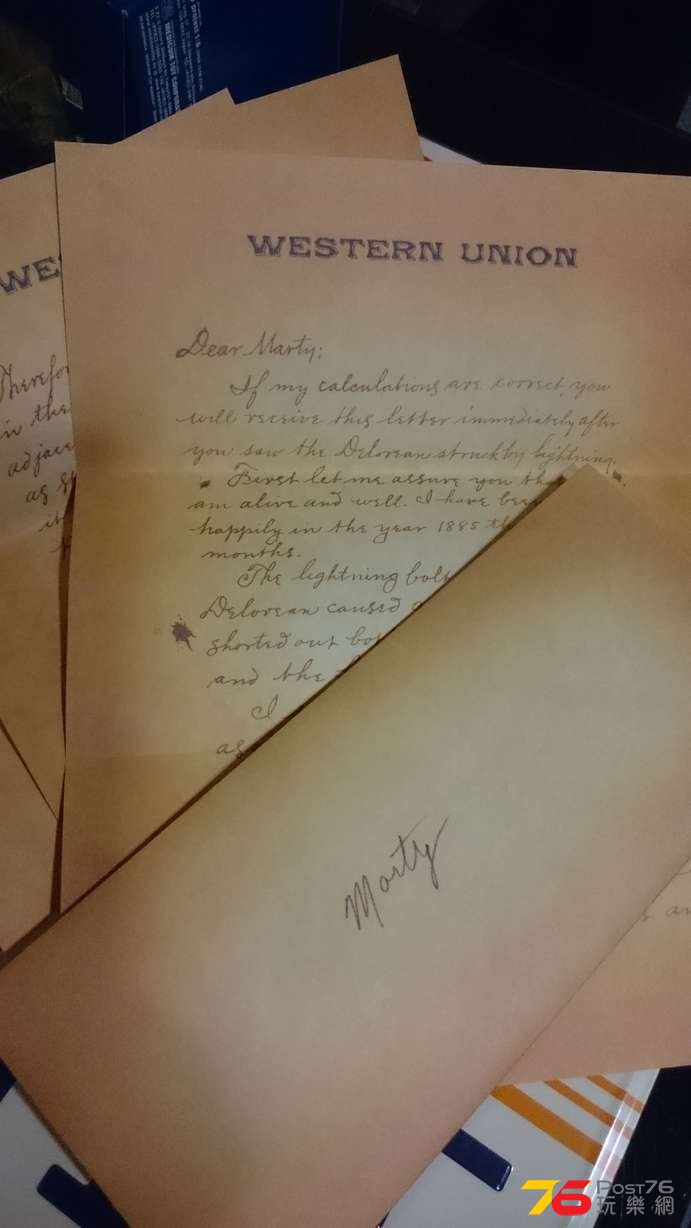 WESTERN UNION
Dear Marty:
If my calculations are correct, you
will receive this letter immediately after
you saw the Delorean struck by lightning.
First let me assure you
am alive and well. I have
happily in the year 1885
months.
The lightning
Delorean caused
shorted out
and the
I
as
WE
in the
as
Marty
76 Post76
玩樂網